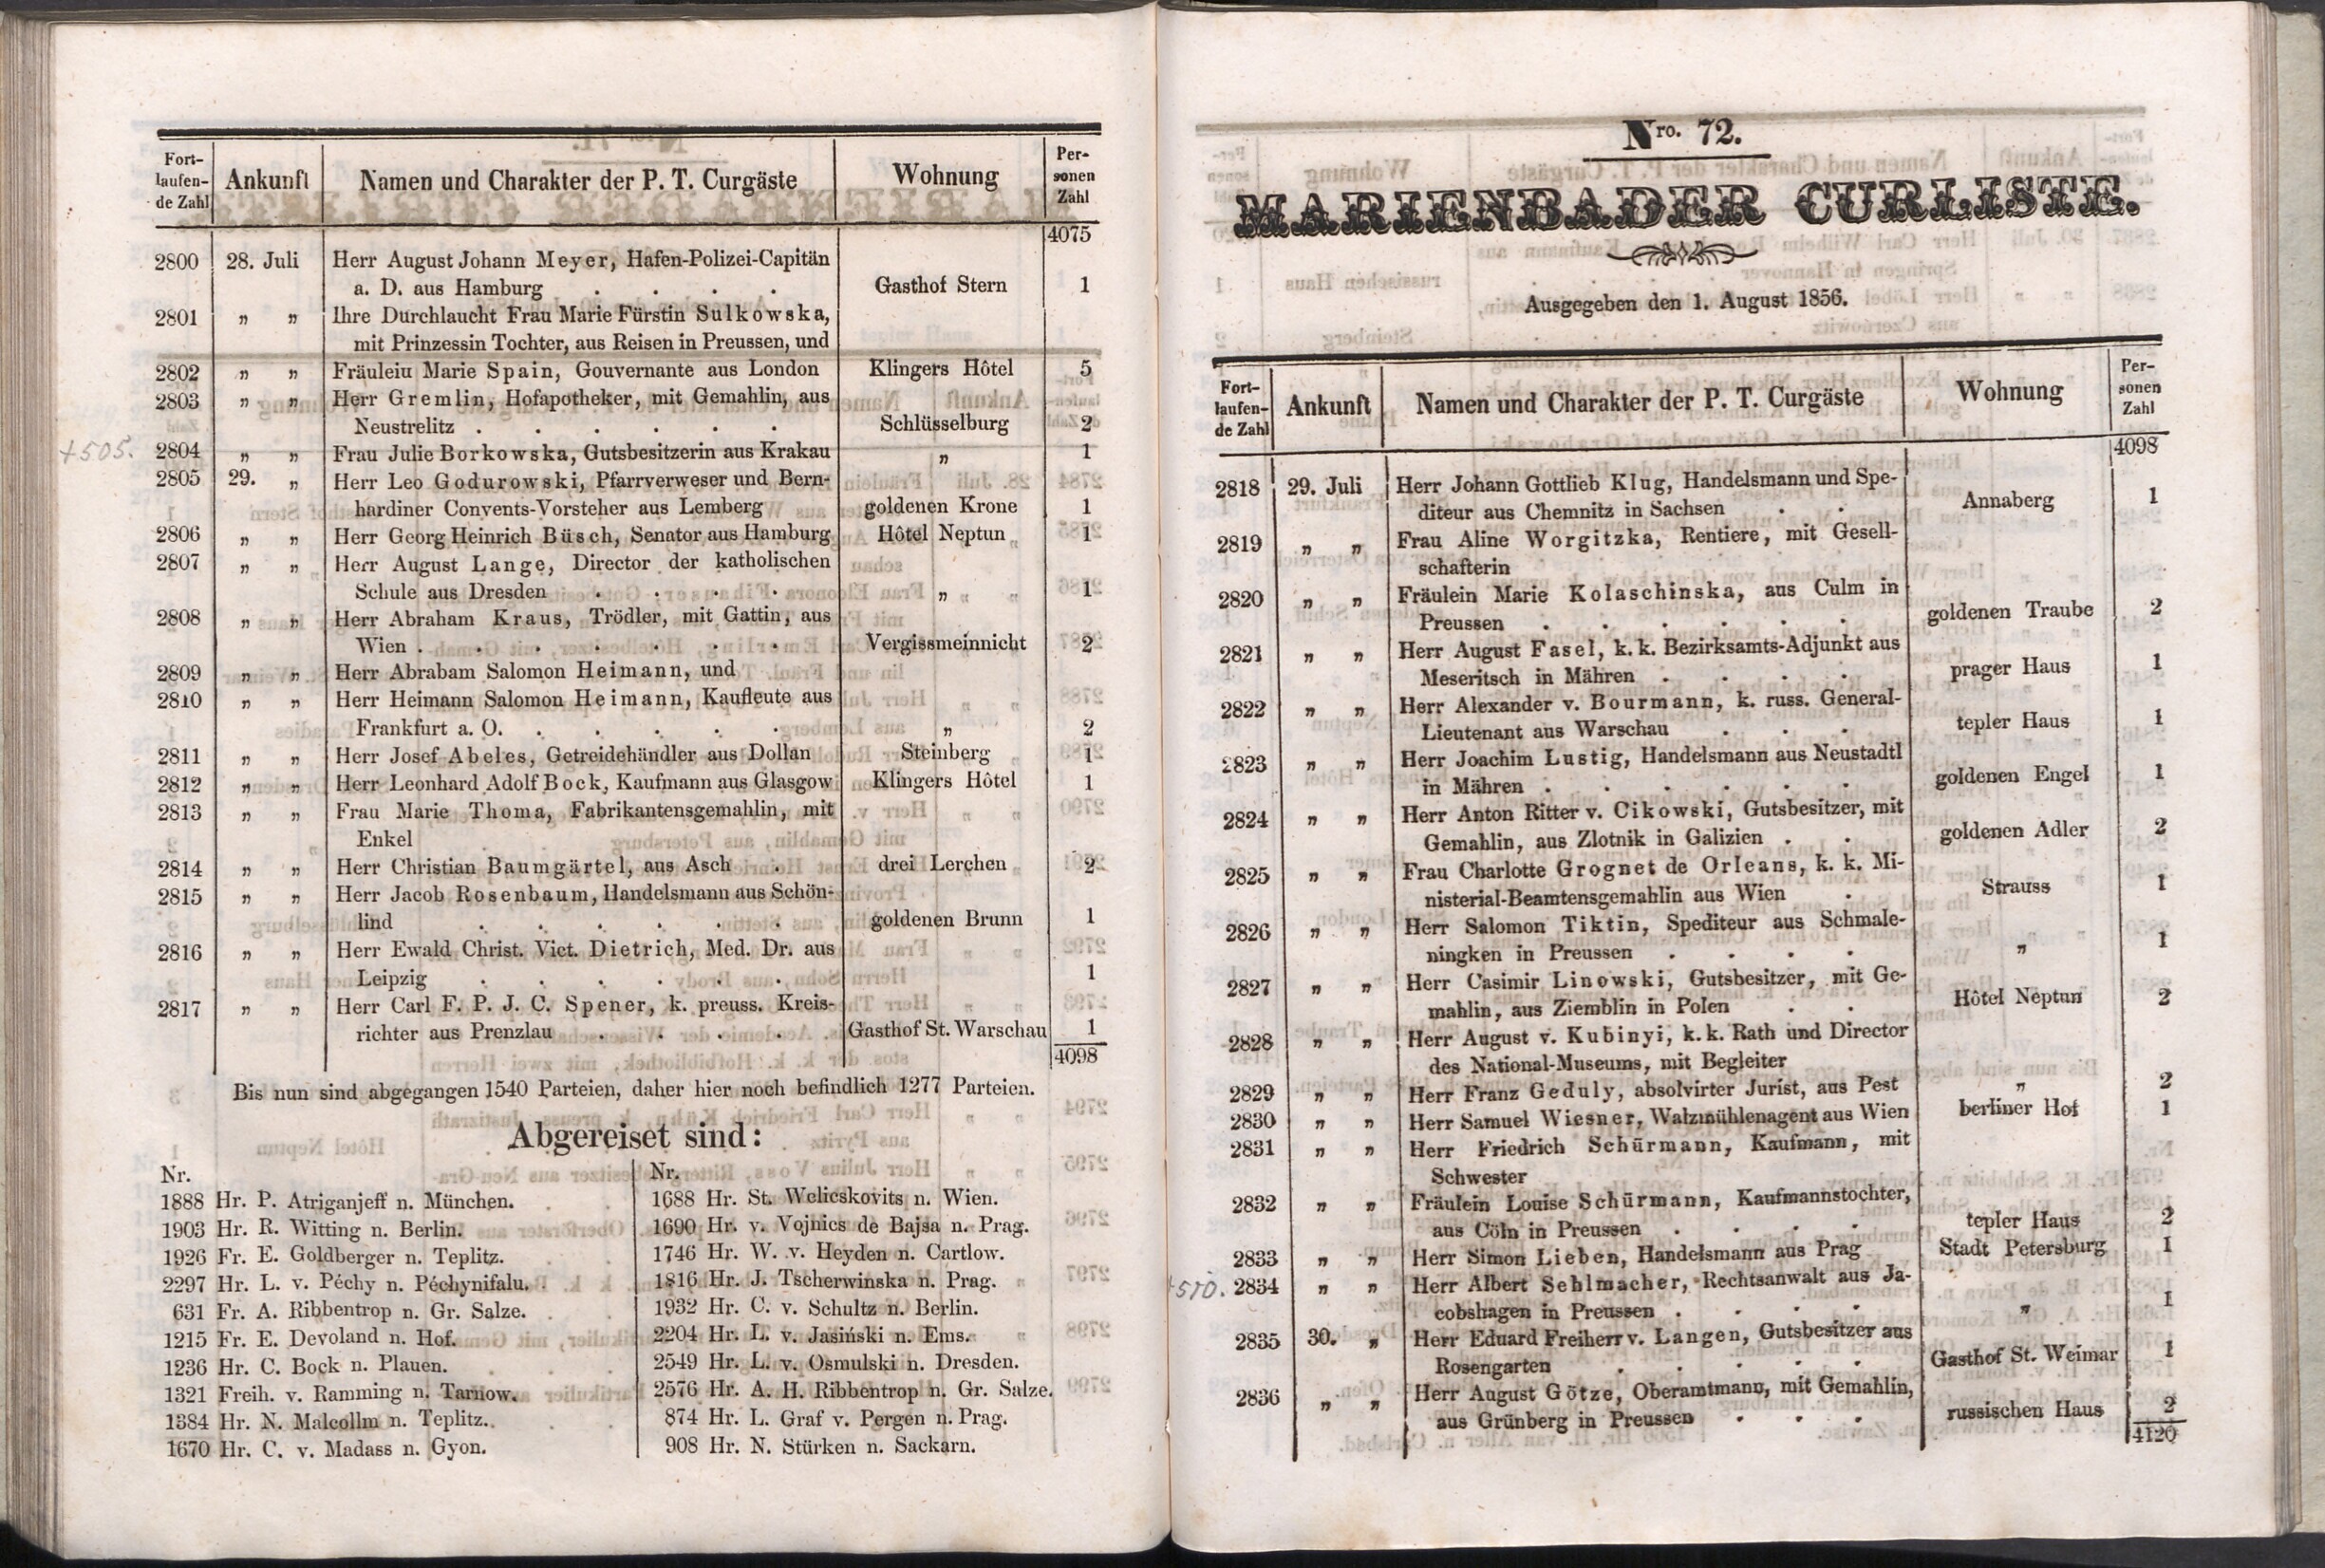 Fort-
laufen-
de Zahl
Ankunft
Namen und Charakter der P. T. Curgäste
Wohnung
Per-
sonen
Zahl
4075
2800 28. Juli Herr August Johann Meyer, Hafen-Polizei-Capitän
a. D. aus Hamburg . . . . Gasthof Stern 1
2801 „ „ Ihre Durchlaucht Frau Marie Fürstin Sulkowska,
mit Prinzessin Tochter, aus Reisen in Preussen, und
2802 „ „ Fräuleiu Marie Spain, Gouvernante aus London Klingers Hôtel 5
2803 „ „ Herr Gremlin, Hofapotheker, mit Gemahlin, aus
Neustrelitz . . . . . . Schlüsselburg 2
+505. 2804 „ „ Frau Julie Borkowska, Gutsbesitzerin aus Krakau „ 1
2805 29. „ Herr Leo Godurowski, Pfarrverweser und Bern-
hardiner Convents-Vorsteher aus Lemberg goldenen Krone 1
2806 „ „ Herr Georg Heinrich Büsch, Senator aus Hamburg Hôtel Neptun 1
2807 „ „ Herr August Lange, Director der katholischen
Schule aus Dresden . . . . „ 1
2808 „ „ Herr Abraham Kraus, Trödler, mit Gattin, aus
Wien . . . . . . . Vergissmeinnicht 2
2809 „ „ Herr Abrabam Salomon Heimann, und
2810 „ „ Herr Heimann Salomon Heimann, Kaufleute aus
Frankfurt a. O. . . . . . „ 2
2811 „ „ Herr Josef Abeles, Getreidehändler aus Dollan Steinberg 1
2812 „ „ Herr Leonhard Adolf Bock, Kaufmann aus Glasgow Klingers Hôtel 1
2813 „ „ Frau Marie Thoma, Fabrikantensgemahlin, mit
Enkel
2814 „ „ Herr Christian Baumgärtel, aus Asch . drei Lerchen 2
2815 „ „ Herr Jacob Rosenbaum, Handelsmann aus Schön-
lind . . . . . . goldenen Brunn 1
2816 „ „ Herr Ewald Christ. Vict. Dietrich, Med. Dr. aus
Leipzig . . . . . . 1
2817 „ „ Herr Carl F. P. J. C. Spener, k. preuss. Kreis-
richter aus Prenzlau . . . . Gasthof St. Warschau 1
4098
Bis nun sind abgegangen 1540 Parteien, daher hier noch befindlich 1277 Parteien.
Abgereiset sind:
Nr.
1888 Hr. P. Atriganjeff n. München.
1903 Hr. R. Witting n. Berlin.
1926 Fr. E. Goldberger n. Teplitz.
2297 Hr. L. v. Péchy n. Péchynifalu.
631 Fr. A. Ribbentrop n. Gr. Salze.
1215 Fr. E. Devoland n. Hof.
1236 Hr. C. Bock n. Plauen.
1321 Freih. v. Ramming n. Tarnow.
1384 Hr. N. Malcollm n. Teplitz.
1670 Hr. C. v. Madass n. Gyon.
Nr.
1688 Hr. St. Welicskovits n. Wien.
1690 Hr. v. Vojnics de Bajsa n. Prag.
1746 Hr. W. v. Heyden n. Cartlow.
1816 Hr. J. Tscherwinska n. Prag.
1932 Hr. C. v. Schultz n. Berlin.
2204 Hr. L. v. Jasiński n. Ems.
2549 Hr. L. v. Osmulski n. Dresden.
2576 Hr. A. H. Ribbentrop n. Gr. Salze.
874 Hr. L. Graf v. Pergen n. Prag.
908 Hr. N. Stürken n. Sackarn.
Nro. 72.
MARIENBADER CURLISTE.
Ausgegeben den 1. August 1856.
Fort-
laufen-
de Zahl
Ankunft
Namen und Charakter der P. T. Curgäste
Wohnung
Per-
sonen
Zahl
4098
2818 29. Juli Herr Johann Gottlieb Klug, Handelsmann und Spe-
diteur aus Chemnitz in Sachsen . . Annaberg 1
2819 „ „ Frau Aline Worgitzka, Rentiere, mit Gesell-
schafterin
2820 „ „ Fräulein Marie Kolaschinska, aus Culm in
Preussen . . . . . . goldenen Traube 2
2821 „ „ Herr August Fasel, k. k. Bezirksamts-Adjunkt aus
Meseritsch in Mähren . . . . prager Haus 1
2822 „ „ Herr Alexander v. Bourmann, k. russ. General-
Lieutenant aus Warschau . . . tepler Haus 1
2823 „ „ Herr Joachim Lustig, Handelsmann aus Neustadtl
in Mähren . . . . . . goldenen Engel 1
2824 „ „ Herr Anton Ritter v. Cikowski, Gutsbesitzer, mit
Gemahlin, aus Zlotnik in Galizien . . goldenen Adler 2
2825 „ „ Frau Charlotte Grognet de Orleans, k. k. Mi-
nisterial-Beamtensgemahlin aus Wien . Strauss 1
2826 „ „ Herr Salomon Tiktin, Spediteur aus Schmale-
ningken in Preussen . . . . „ 1
2827 „ „ Herr Casimir Linowski, Gutsbesitzer, mit Ge-
mahlin, aus Ziemblin in Polen . . Hôtel Neptun 2
2828 „ „ Herr August v. Kubinyi, k. k. Rath und Director
des National-Museums, mit Begleiter
2829 „ „ Herr Franz Geduly, absolvirter Jurist, aus Pest „ 2
2830 „ „ Herr Samuel Wiesner, Walzmühlenagent aus Wien berliner Hof 1
2831 „ „ Herr Friedrich Schürmann, Kaufmann, mit
Schwester
2832 „ „ Fräulein Louise Schürmann, Kaufmannstochter,
aus Cöln in Preussen . . . . tepler Haus 2
2833 „ „ Herr Simon Lieben, Handelsmann aus Prag Stadt Petersburg 1
+510. 2834 „ „ Herr Albert Sehlmacher, Rechtsanwalt aus Ja-
cobshagen in Preussen . . . . „ 1
2835 30. „ Herr Eduard Freiherr v. Langen, Gutsbesitzer aus
Rosengarten . . . . . Gasthof St. Weimar 1
2836 „ „ Herr August Götze, Oberamtmann, mit Gemahlin,
aus Grünberg in Preussen . . . russischen Haus 2
4120